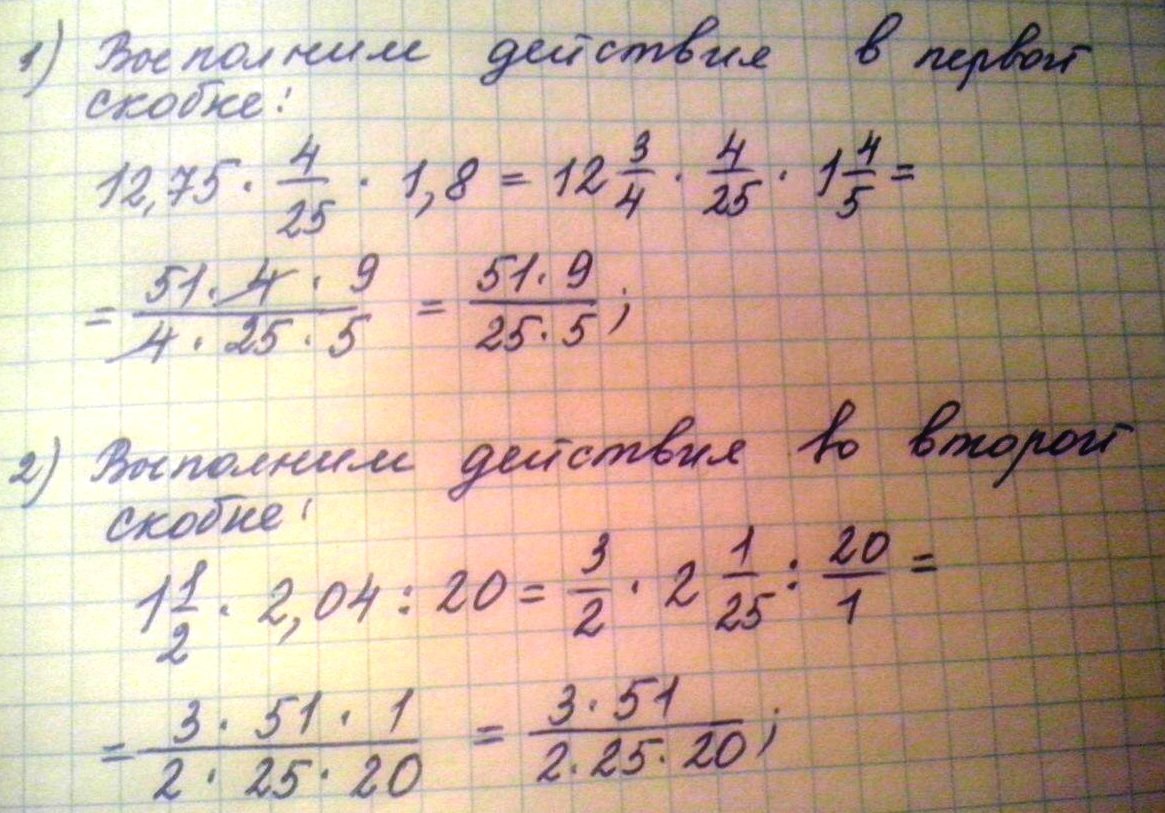 1) Выполним действия в первой
скобке:
12,75 · 4/25 · 1,8 = 12 3/4 · 4/25 · 1 4/5 =
= 51 · 4 · 9 / 4 · 25 · 5 = 51 · 9 / 25 · 5 ;
2) Выполним действия во второй
скобке:
1 1/2 · 2,04 : 20 = 3/2 · 2 1/25 : 20/1 =
= 3 · 51 · 1 / 2 · 25 · 20 = 3 · 51 / 2 · 25 · 20 ;